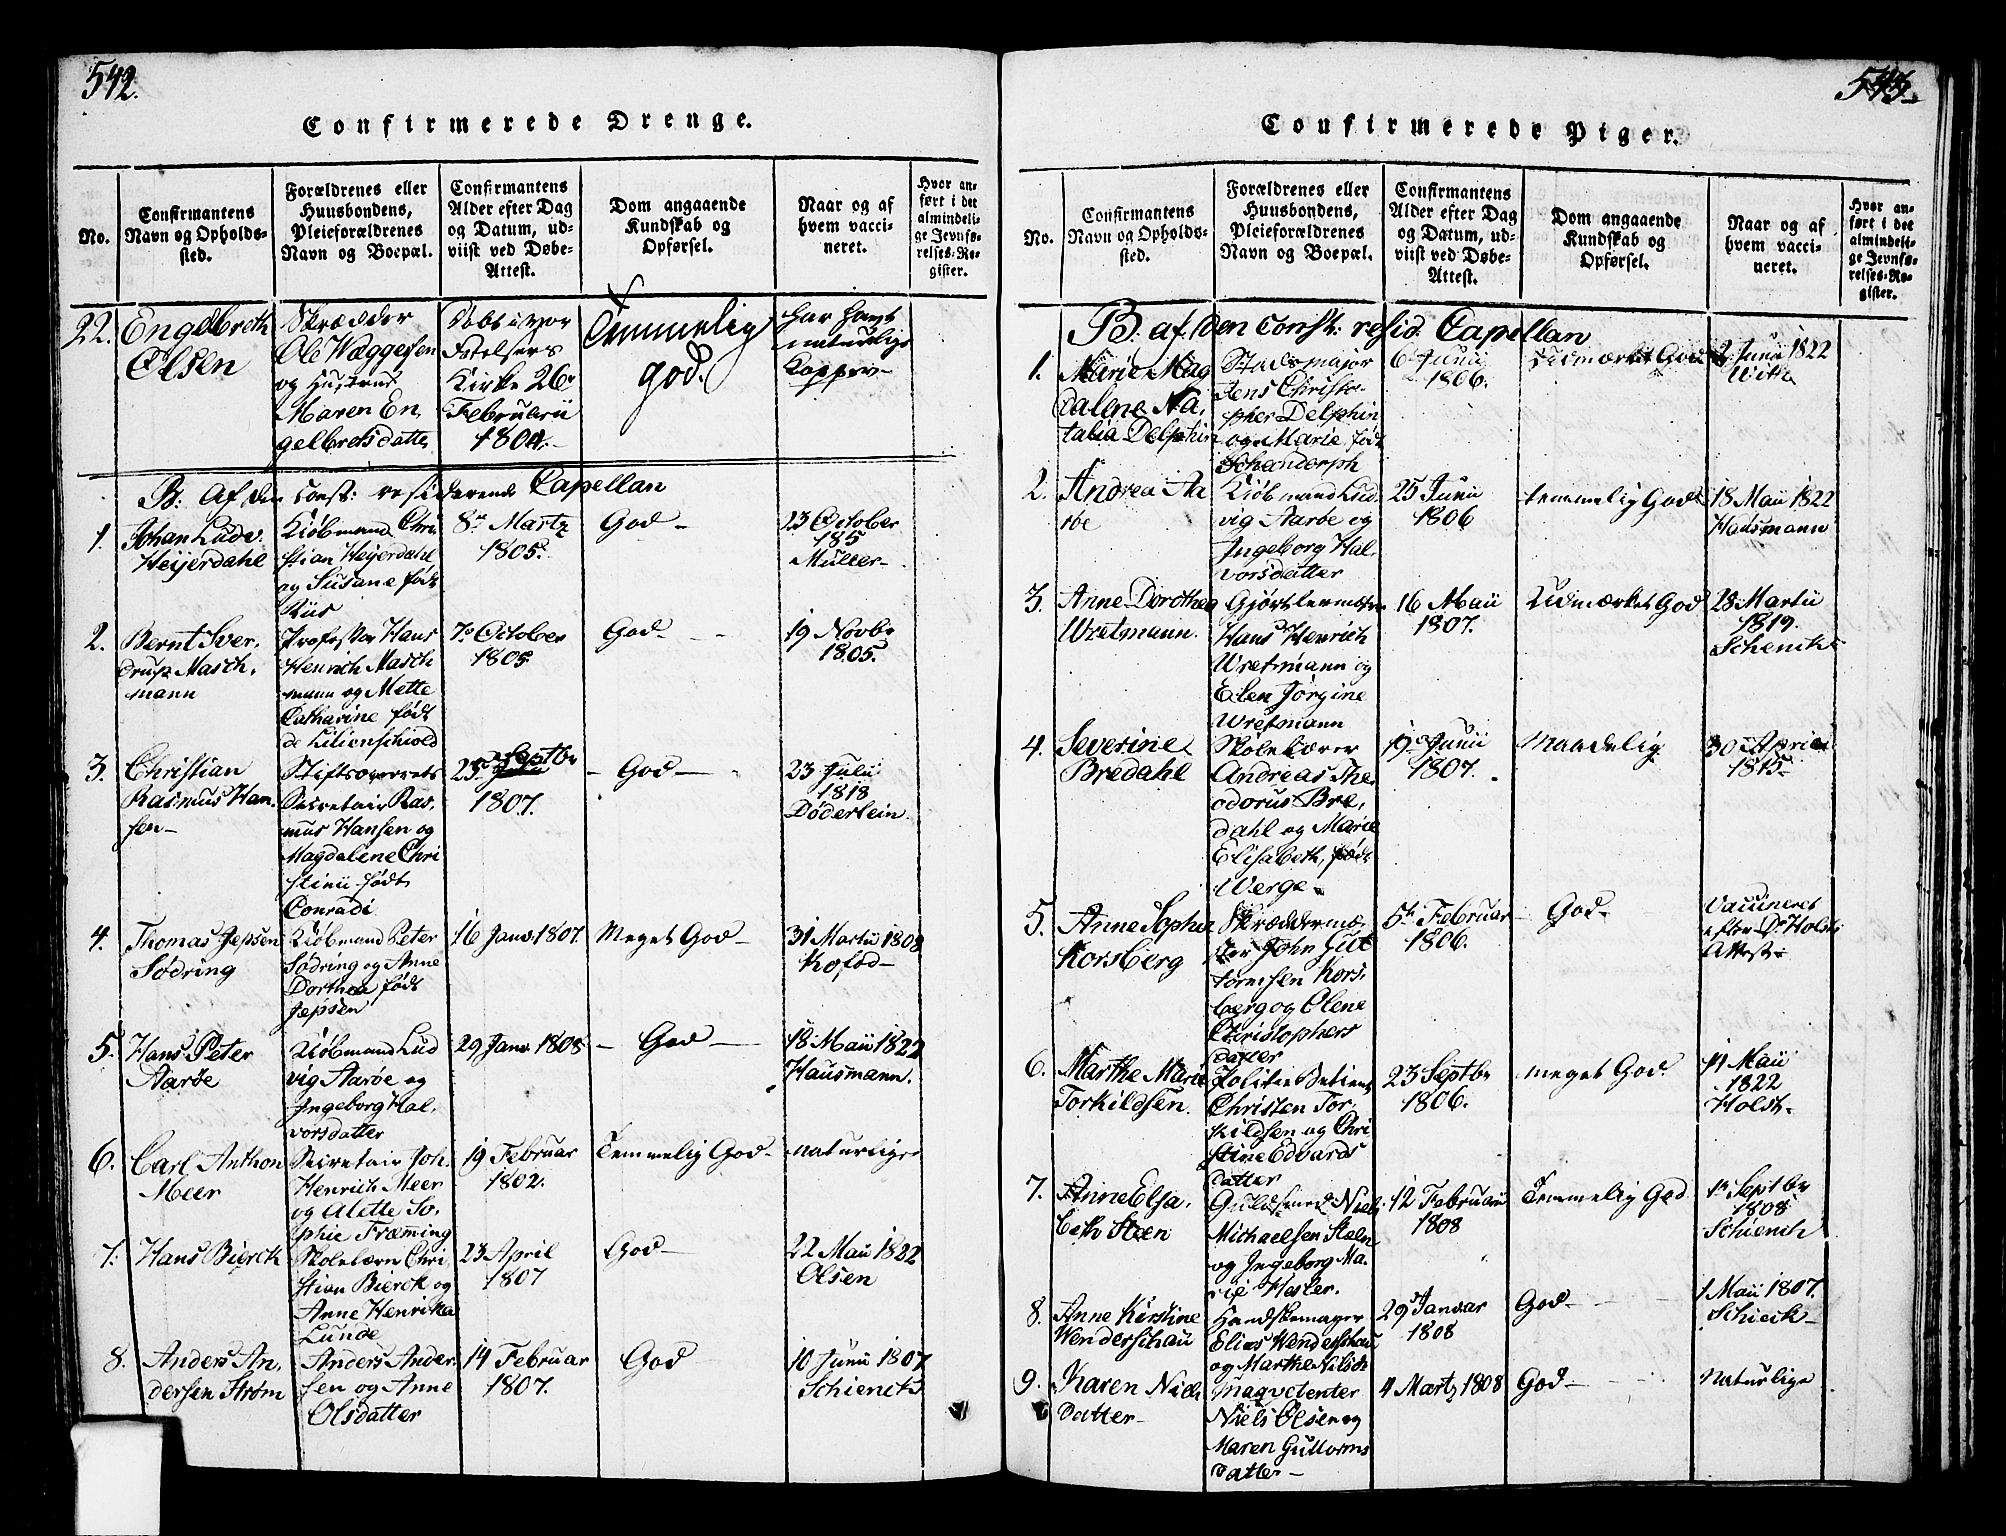 542.
Confirmerede Drenge.
No.
Confirmantens
Navn og Opholds-
sted.
Forældrenes eller
Huusbondens,
Pleieforældrenes
Navn og Boepæl.
Confirmantens
Alder efter Dag
og Datum, ud-
viist ved Døbe-
Attest.
Dom angaaende
Kundskab og
Opførsel.
Naar og af
hvem vacci-
neret.
Hvor an-
ført i det
almindeli-
ge Jevnfø-
relses-Re-
gister.
22.
Engelbreth
Olsen
Skrædder
Ole Waggersen
og Hustrue
Maren En,
gelbretsdatter
Døbt i vor
Frelsers
Kirke 26de
Februarii
1804.
Temmelig
god.
har havt
naturlige
Kopper
B. Af den const: residerende Capellan
1.
Johan Ludv.
Heijerdahl
Kiøbmand Chri
stian Heijerdahl
og Susane født
Riis
8de Martz
1805.
God
23 October
185
Müller
2.
Bernt Sver,
drup Masch,
mann
Professor Hans
Henrich Masch
mann og Mette
Catharine født
de Lilienschiold
7de October
1805
God
19 Novbr
1805.
3.
Christian
Rasmus Han,
sen
Stiftsoverrets
Secretair Ras,
mus Hansen og
Magdalene Chri
stine født
Conradi
25 Septbr
1807.
God
23 Julii
1818
Døderlein
4.
Thomas Jepsen
Sødring
Kiøbmand Peter
Sødring og Anne
Dorthea født
Jepsen
16 Janv. 1807
Meget God
31 Martii 1808
Kofod
5.
Hans Peter
Aarøe
Kiøbmand Lud
vig Aarøe og
Ingeborg Hal,
vorsdatter
29 Janv. 1808
God
18 Maii 1822
Hausmann.
6.
Carl Anthon
Meer
Secretair Joh.
Henrich Meer
og Alette So,
phie Fræming
19 Februar
1802.
Temmelig God
naturlige
7.
Hans Bierck
Skolelærer Chri
stian Bierck og
Anne Henrikka
Lunde
23 April
1807
God
22 Maii 1822
Olsen
8.
Anders An,
dersen Strøm
Anders Ander,
sen og Anne
Olsdatter
14 Februar
1807.
God
10 Junii 1807
Schienck
543.
Confirmerede Piger.
No.
Confirmantens
Navn og Opholds-
sted.
Forældrenes eller
Huusbondens,
Pleieforældrenes
Navn og Boepæl.
Confirmantens
Alder efter Dag
og Datum, ud-
viist ved Døbe-
Attest.
Dom angaaende
Kundskab og
Opførsel.
Naar og af
hvem vacci-
neret.
Hvor an-
ført i det
almindeli-
ge Jevnfø-
relses-Re-
gister.
B. af den Const: resid. Capellan
1.
Marie Mag
dalene Na,
talia Delphin
Stadsmajor
Jens Christo
pher Delphin
og Marie født
Schandorph
6 Junii
1806.
Udmærket God
2 Junii 1822
With
2.
Andrea Aa
røe
Kiøbmand Lud,
vig Aarøe og
Ingeborg Hal,
vorsdatter
25 Junii
1806
temmelig God
18 Maii 1822
Hausmann
3.
Anne Dorothea
Wretmann.
Gjørtlermester
Hans Henrich
Wretmann og
Elen Jørgine
Wretmann
16 Maii
1807.
Udmærket God
28 Martii
1819.
Schenck
4.
Severine
Bredahl
Skolelærer
Andreas The
odorus Bre,
dahl og Marie
Elisabeth, født
Werge
19 Junii
1807.
Maadelig
30 April
1815
5.
Anne Sophie
Korsberg
Skræddermæ,
ster John Gut
tormsen Kors,
berg og Olene
Christophers
datter
5te Februar
1806.
God
Vaccineret
efter Dr Holst
Attest
6.
Marthe Marie
Torkildsen.
Politie Betient
Christen Tor,
kildsen og Chri
stine Edvards
datter
23 Septbr
1806.
meget God.
11 Maii
1822
Holst
7.
Anne Elsa,
beth Steen
Guldsmed Niels
Michaelsen Steen
og Ingeborg Ma,
rie Hesler.
12 Februarii
1808
Temmelig God
1te Septbr
1808
Schienck
8.
Anne Kirstine
Wenderschau
Handskemager
Elias Wenderschau
og Marthe Nilsdr
29 Januar
1808
God
1 Maii 1807.
Schieck
9.
Karen Niels
datter
Marqvetenter
Niels Olsen og
Maren Gulborms
datter
4 Martz 1808
God
Naturlige